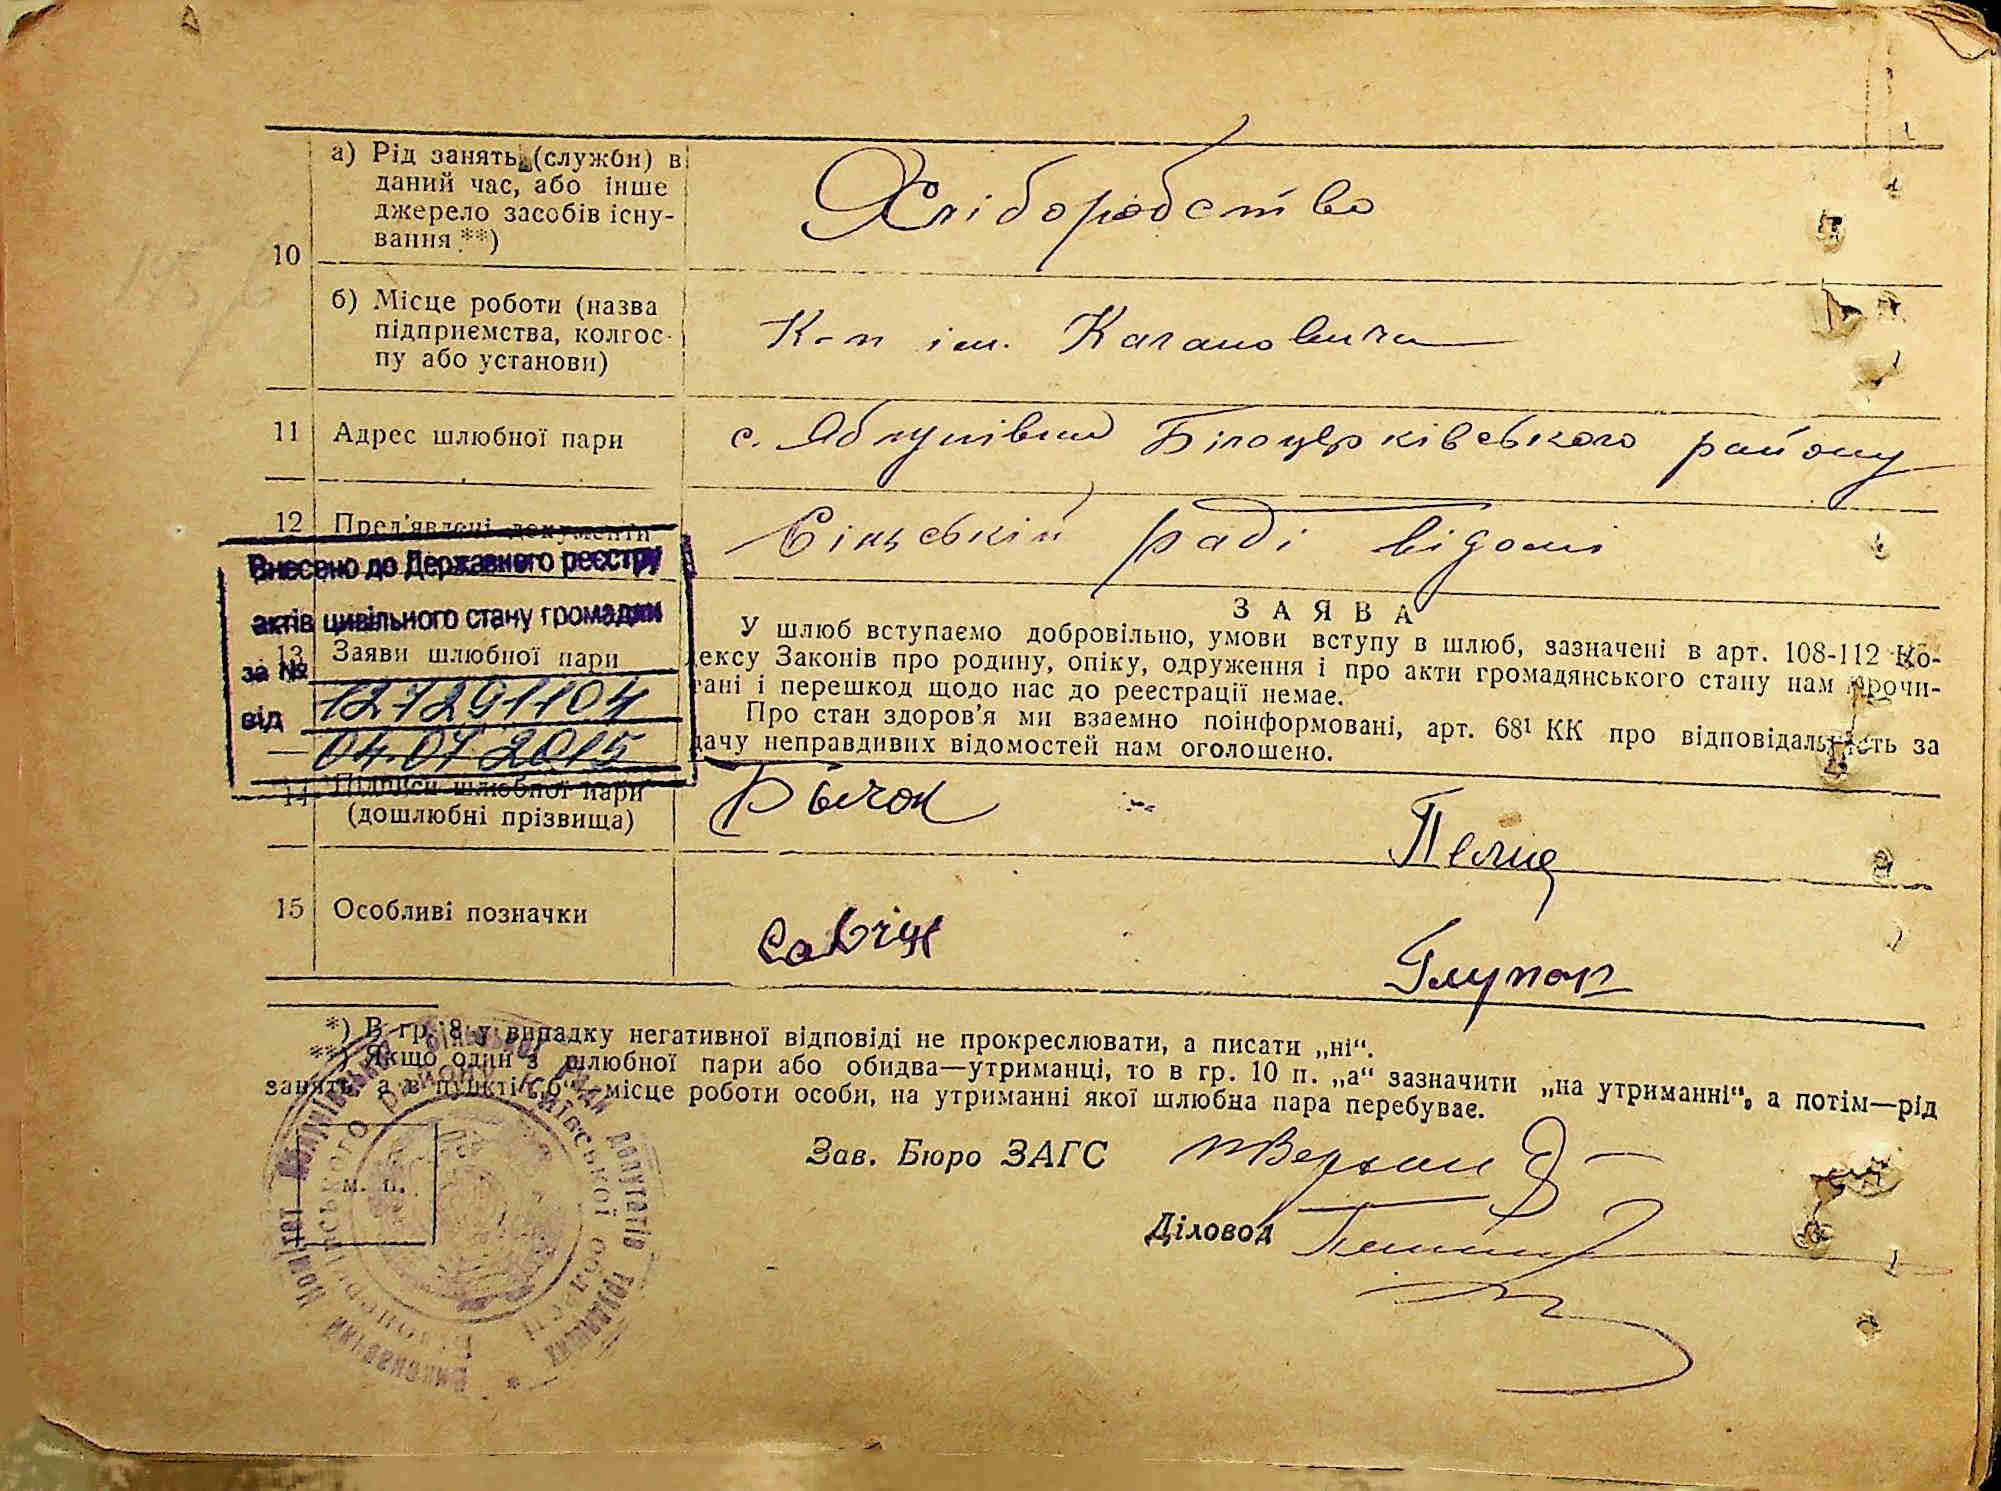 10
а) Рід занять (служби) в
даний час, або інше
джерело засобів існу-
вання **)
Хліборобство
б) Місце роботи (назва
підприємства, колгос-
пу або установи)
К-п ім. Кагановича
11 Адрес шлюбної пари
с. Яблунівка Білоцерківського району
12 Пред'явлені документи
Сільській раді відомі
Внесено до Державного реєстру
актів цивільного стану громадян
за №
127291104
від
04.07.2015
13 Заяви шлюбної пари
ЗАЯВА
У шлюб вступаємо добровільно, умови вступу в шлюб, зазначені в арт. 108-112 Ко-
дексу Законів про родину, опіку, одруження і про акти громадянського стану нам прочи-
тані і перешкод щодо нас до реестрації немає.
Про стан здоров'я ми взаємно поінформовані, арт. 68¹ КК про відповідальність за
дачу неправдивих відомостей нам оголошено.
14 Підписи шлюбної пари
(дошлюбні прізвища)
Бичок
15 Особливі позначки
*) В гр. 8 у випадку негативної відповіді не прокреслювати, а писати „ні“.
**) Якщо один з шлюбної пари або обидва—утриманці, то в гр. 10 п. „а“ зазначити „на утриманні“, а потім—рід
занять, а в пункті „б“ місце роботи особи, на утриманні якої шлюбна пара перебуває.
Зав. Бюро ЗАГС
Діловод
м. п.